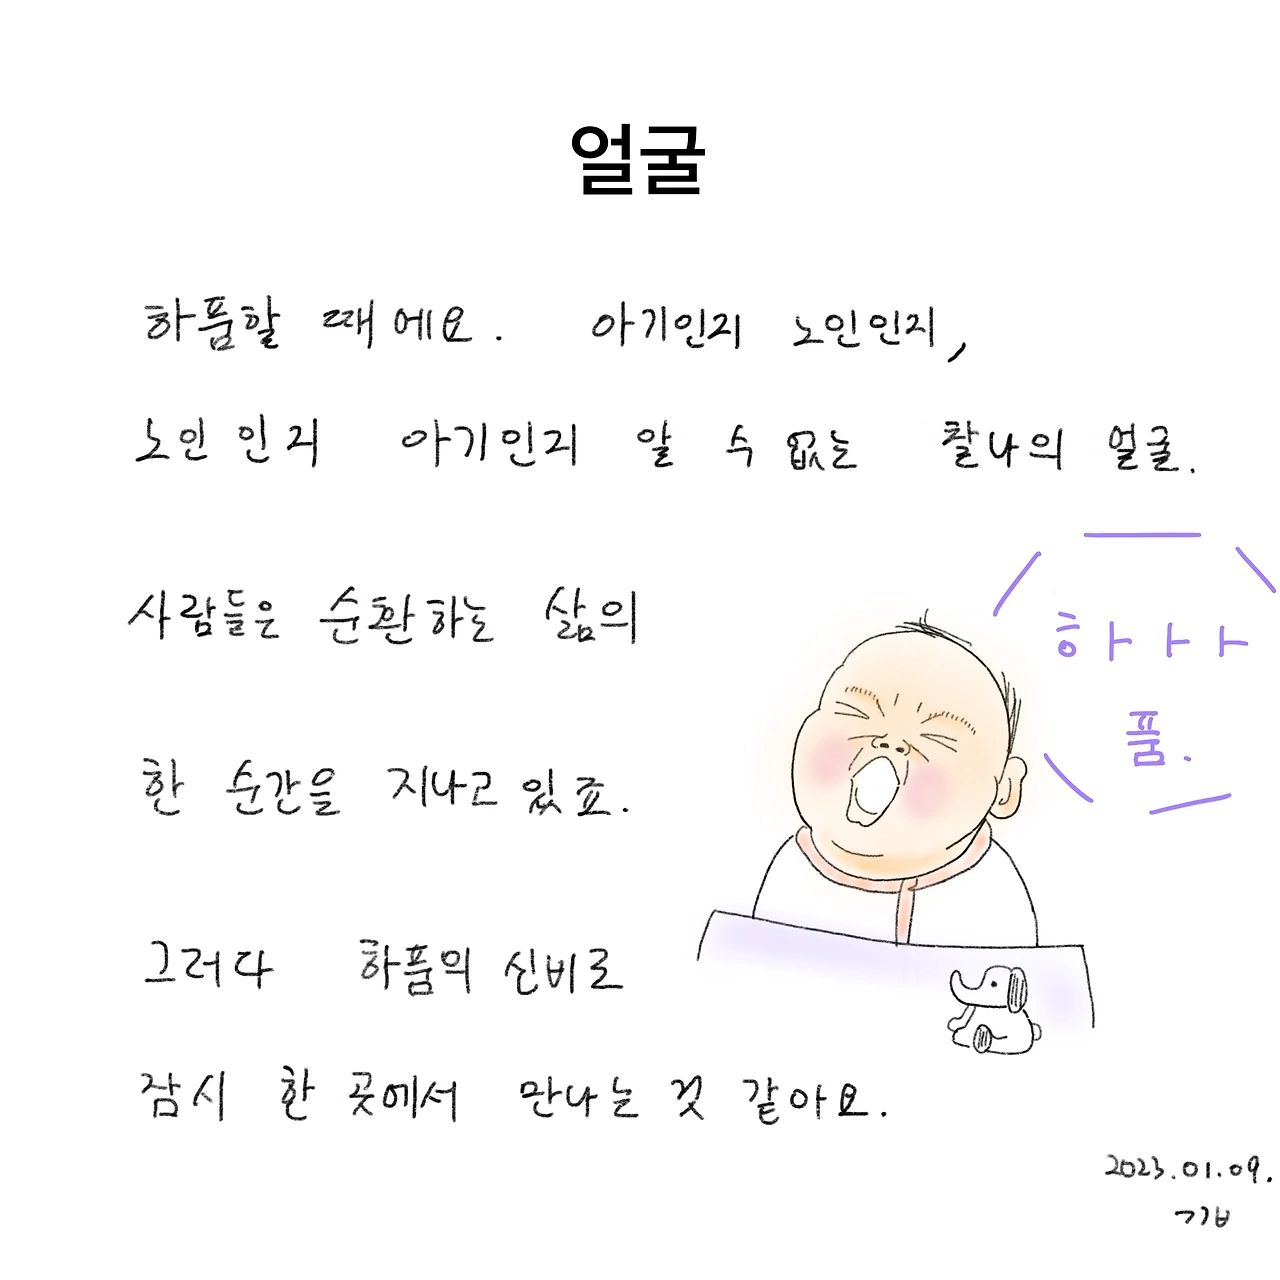 얼굴
하품할 때에요. 아기인지 노인인지,
노인인지 아기인지 알 수 없는 찰나의 얼굴.
사람들은 순환하는 삶의
한 순간을 지나고 있죠.
하 ㅏ ㅏ
품.
그러다 하품의 신비로
잠시 한 곳에서 만나는 것 같아요.
2023.01.09.